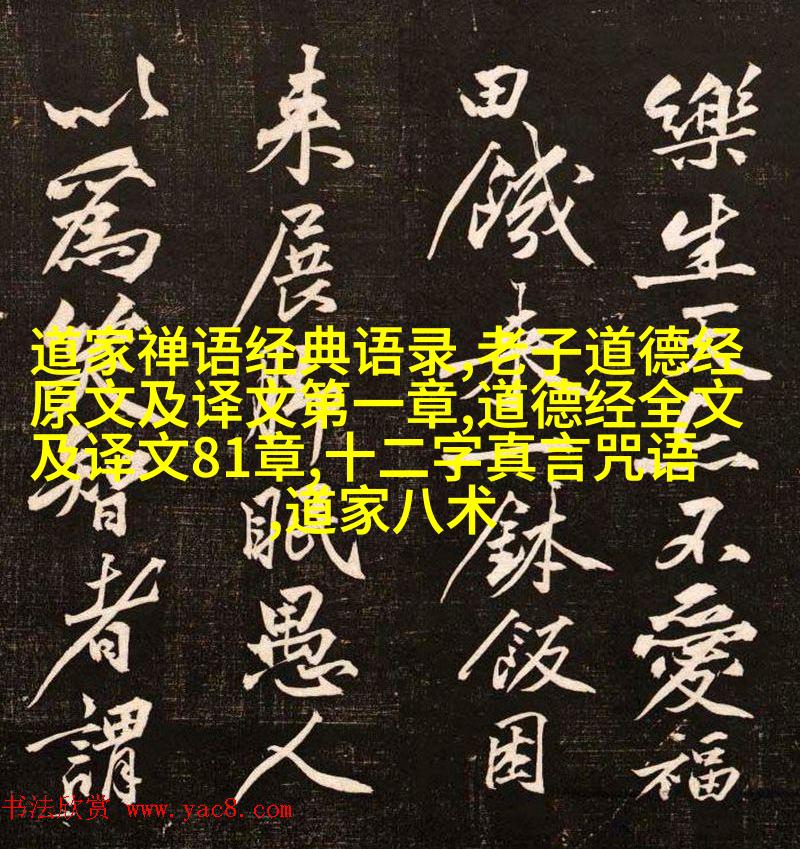 樂生天亦不愛福
田饑来一鉢飯困
来展脚眠愚人
以為笑智者謂
道家禅语经典语录,老子道德经
原文及译文第一章,道德经全文
及译文81章,十二字真言咒语
,道家八术
书法欣赏 www.yac8.com